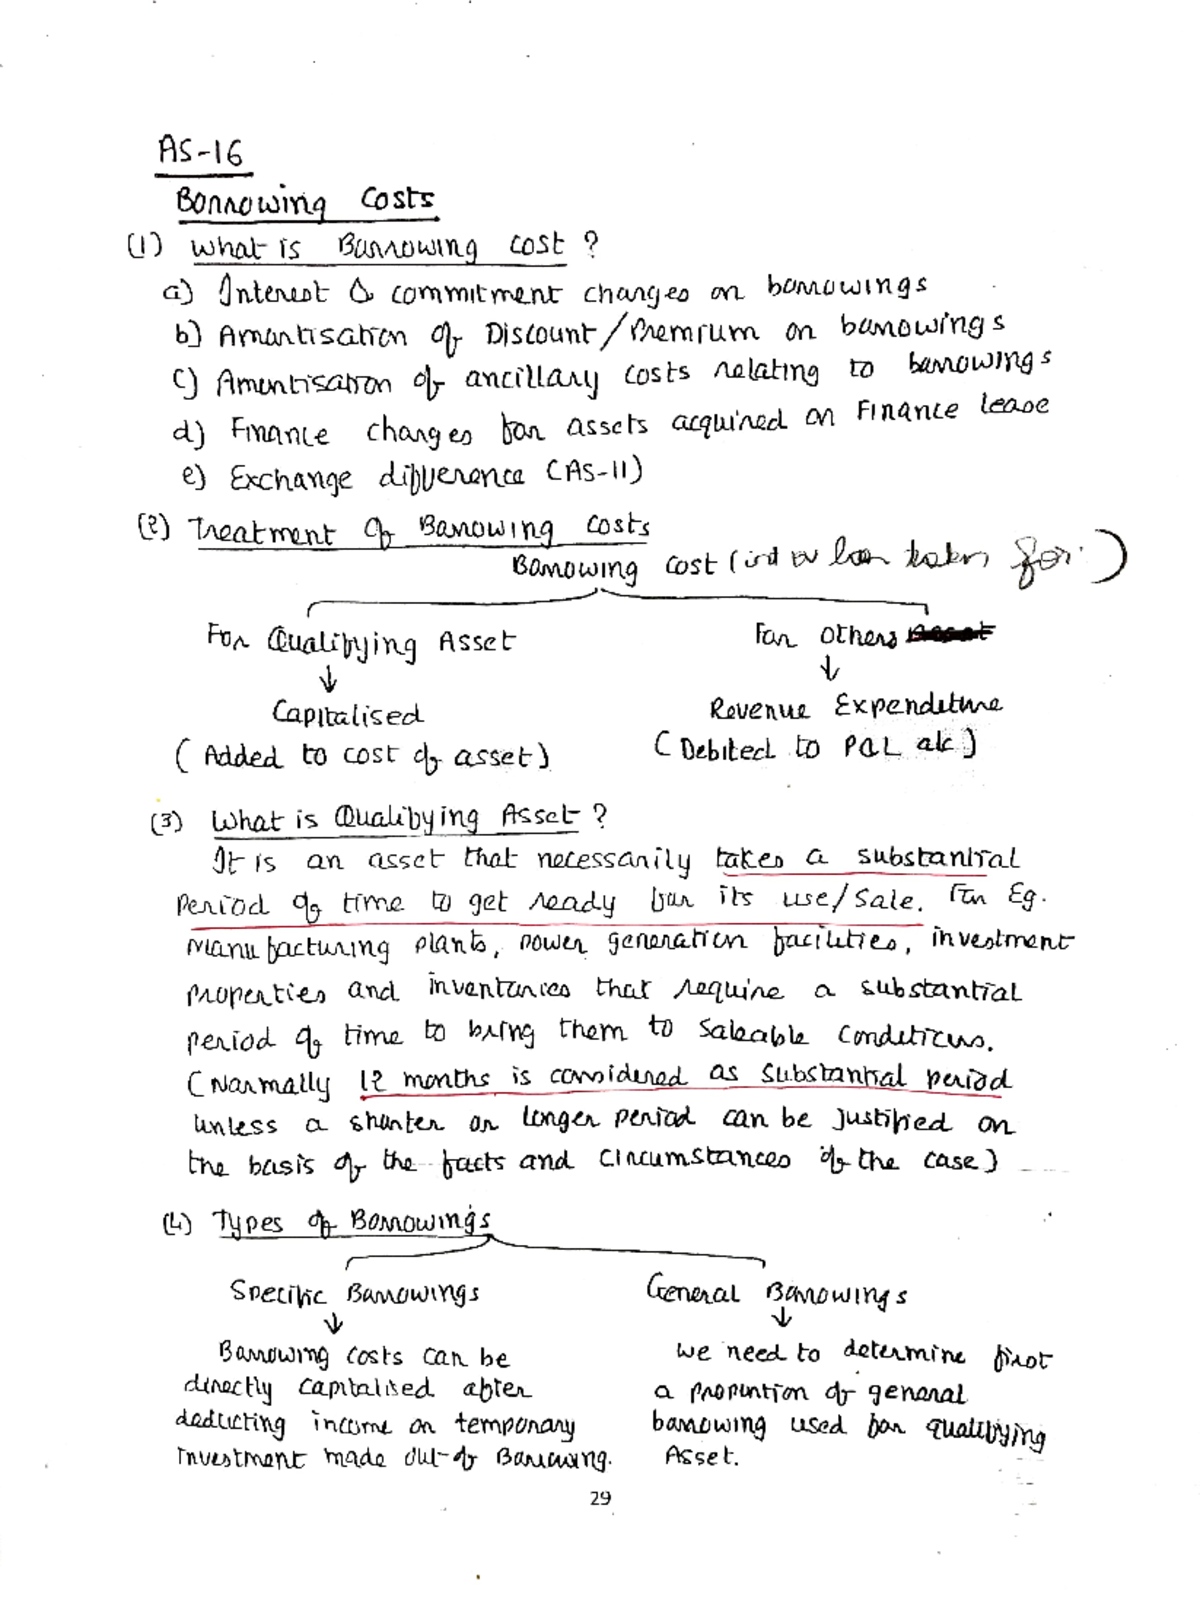 AS-16
Borrowing Costs
(1) What is Borrowing cost ?
a) Interest & commitment charges on borrowings
b) Amortisation of Discount/Premium on borrowings
c) Amortisation of ancillary costs relating to borrowings
d) Finance charges for assets acquired on Finance lease
e) Exchange difference (AS-11)
(2) Treatment of Borrowing costs
Borrowing cost (int on loan taken for:)
For Qualifying Asset For others
↓ ↓
Capitalised Revenue Expenditure
(Added to cost of asset) (Debited to P&L a/c)
(3) What is Qualifying Asset ?
It is an asset that necessarily takes a substantial
period of time to get ready for its use/sale. For Eg.
Manufacturing plants, power generation facilities, investment
properties and inventories that require a substantial
period of time to bring them to saleable conditions.
(Normally 12 months is considered as substantial period
unless a shorter or longer period can be justified on
the basis of the facts and circumstances of the case)
(4) Types of Borrowings
Specific Borrowings General Borrowings
↓ ↓
Borrowing costs can be we need to determine first
directly capitalised after a proportion of general
deducting income on temporary borrowing used for qualifying
investment made out-of Borrowing. Asset.
29